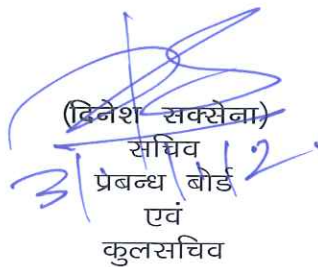 (दिनेश सक्सेना)
सचिव
प्रबन्ध बोर्ड
एवं
कुलसचिव